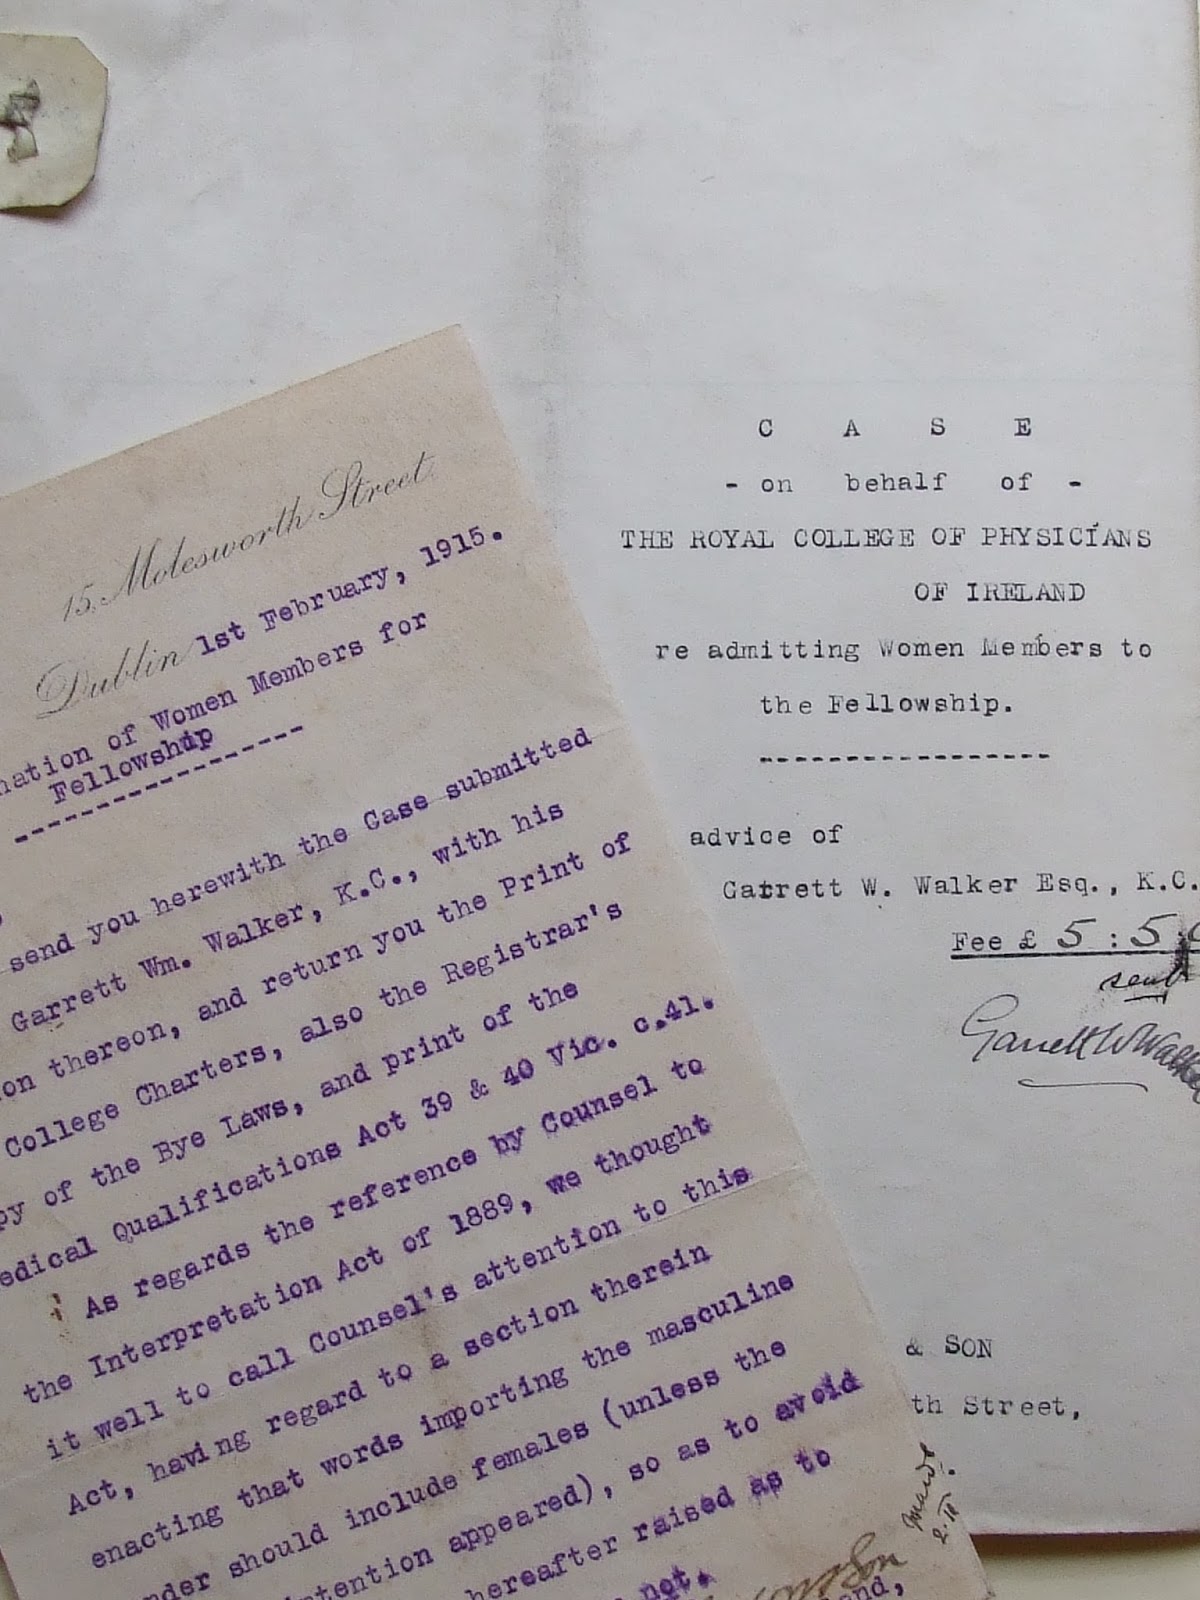 15, Molesworth Street,
Dublin 1st February, 1915.
of Women Members for
Fellowship
-----------------
send you herewith the Case submitted
Garrett Wm. Walker, K.C., with his
thereon, and return you the Print of
College Charters, also the Registrar's
of the Bye Laws, and print of the
Qualifications Act 39 & 40 Vic. c.41.
As regards the reference by Counsel to
the Interpretation Act of 1889, we thought
it well to call Counsel's attention to this
Act, having regard to a section therein
enacting that words importing the masculine
should include females (unless the
appeared), so as to avoid
hereafter raised as to
not.
C A S E
- on behalf of -
THE ROYAL COLLEGE OF PHYSICIANS
OF IRELAND
re admitting Women Members to
the Fellowship.
-----------------
advice of
Garrett W. Walker Esq., K.C.
Fee £ 5 : 5
sent
Garrett W Walker
& SON
Street,